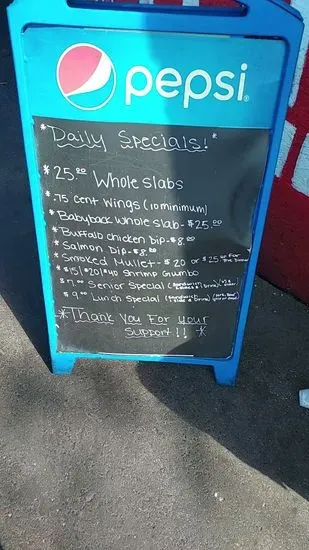 pepsi
*Daily Specials!*
*25.00 Whole slabs
*.75 cent wings (10 minimum)
*Babyback whole slab-$25.00
*Buffalo chicken Dip-$8.00
*Salmon Dip-$8.00
*Smoked Mullet-$20 or $25 For the Dinner
*$15|$20|$40 Shrimp Gumbo
Senior Special
$9.00 Lunch Special
*Thank You For your
Support!! *